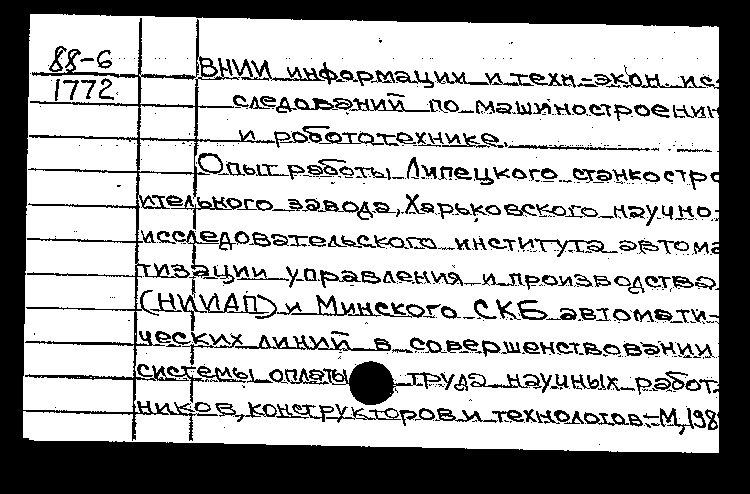 88-6
1772
ВНИИ информации и техн.-экон. ис-
следований по машиностроению
и робототехнике.
Опыт работы Липецкого станкостро
ительного завода, Харьковского научно-
исследовательского института автома
тизации управления и производства
(НИИАП) и Минского СКБ автомати-
ческих линий в совершенствовании
системы оплаты труда научных работ
ников, конструкторов и технологов.-М, 198